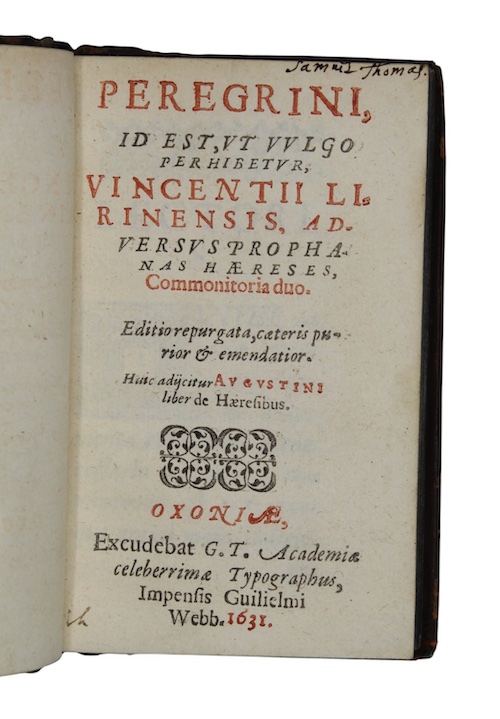 Samuel Thomas.
PEREGRINI,
ID EST, VT VVLGO
PERHIBETVR,
VINCENTII LI-
RINENSIS, AD-
VERSVS PROPHA-
NAS HÆRESES,
Commonitoria duo.
Editio repurgata, cæteris pu-
rior & emendatior.
Huic adijcitur AVGVSTINI
liber de Hæresibus.
OXONIÆ,
Excudebat G. T. Academiæ
celeberrimæ Typographus,
Impensis Guilielmi
Webb. 1631.